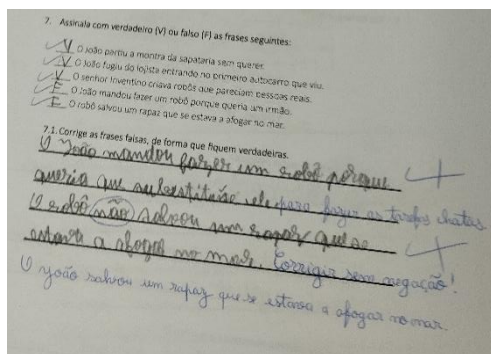 7. Assinala com verdadeiro (V) ou falso (F) as frases seguintes:
V O João partiu a montra da sapataria sem querer.
V O João fugiu do lojista entrando no primeiro autocarro que viu.
V O senhor Inventino criava robôs que pareciam pessoas reais.
F O João mandou fazer um robô porque queria um irmão.
F O robô salvou um rapaz que se estava a afogar no mar.
7.1. Corrige as frases falsas, de forma que fiquem verdadeiras.
O João mandou fazer um robô porque
queria que substituíse ele para fazer as tarefas chatas.
O robô não salvou um rapaz que se
estava a afogar no mar. Corrigir sem negação!
O João salvou um rapaz que se estava a afogar no mar.